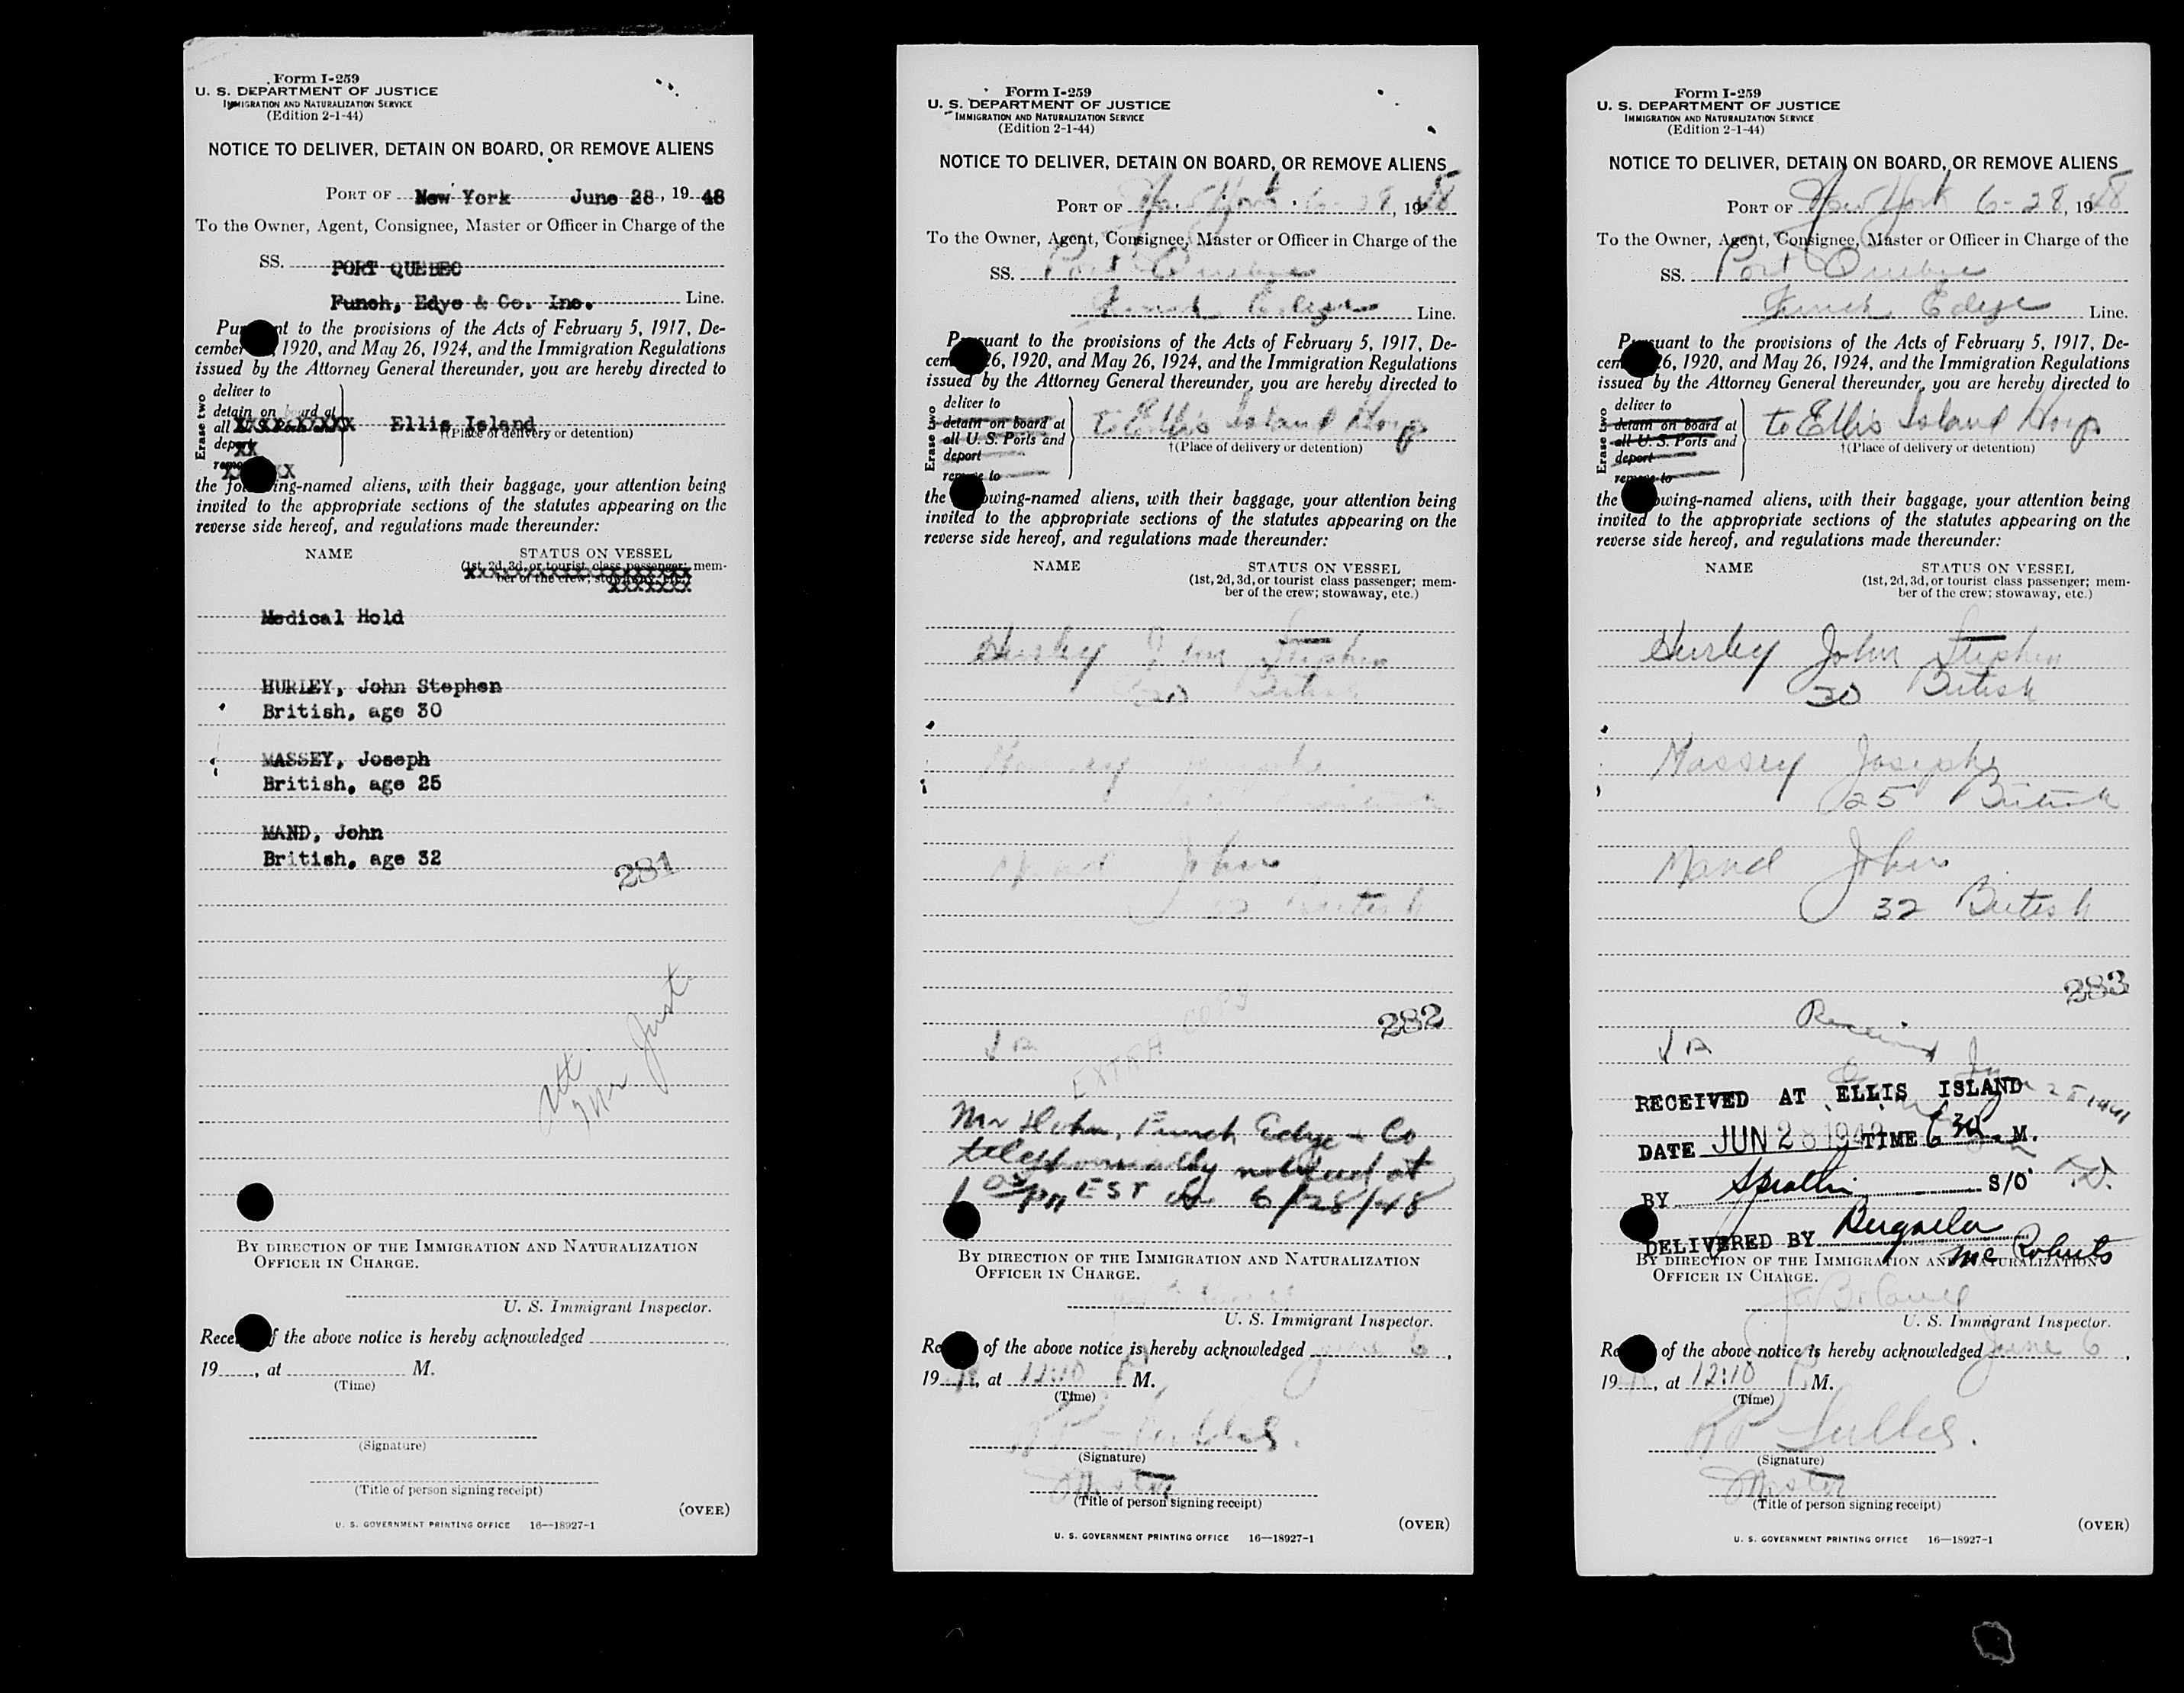 Form I-259
U. S. DEPARTMENT OF JUSTICE
IMMIGRATION AND NATURALIZATION SERVICE
(Edition 2-1-44)
NOTICE TO DELIVER, DETAIN ON BOARD, OR REMOVE ALIENS
PORT OF New York June 28, 1948
To the Owner, Agent, Consignee, Master or Officer in Charge of the
SS. PORT QUEBEC
Funch, Edye & Co. Inc. Line.
Pursuant to the provisions of the Acts of February 5, 1917, De-
cember 1920, and May 26, 1924, and the Immigration Regulations
issued by the Attorney General thereunder, you are hereby directed to
Erase two
deliver to
detain on board at
all U. S. Ports and
deport
remove
Ellis Island
†(Place of delivery or detention)
the following-named aliens, with their baggage, your attention being
invited to the appropriate sections of the statutes appearing on the
reverse side hereof, and regulations made thereunder:
NAME STATUS ON VESSEL
(1st, 2d, 3d, or tourist class passenger; mem-
ber of the crew; stowaway, etc.)
Medical Hold
HURLEY, John Stephen
British, age 30
MASSEY, Joseph
British, age 25
MAND, John
British, age 32
281
Att.
Mr Just
BY DIRECTION OF THE IMMIGRATION AND NATURALIZATION
OFFICER IN CHARGE.
U. S. Immigrant Inspector.
Receipt of the above notice is hereby acknowledged
19 , at M.
(Time)
(Signature)
(Title of person signing receipt)
(OVER)
U. S. GOVERNMENT PRINTING OFFICE 16—18927-1
Form I-259
U. S. DEPARTMENT OF JUSTICE
IMMIGRATION AND NATURALIZATION SERVICE
(Edition 2-1-44)
NOTICE TO DELIVER, DETAIN ON BOARD, OR REMOVE ALIENS
PORT OF New York 6-28, 1948
To the Owner, Agent, Consignee, Master or Officer in Charge of the
SS. Port Quebec
Funch Edye Line.
Pursuant to the provisions of the Acts of February 5, 1917, De-
cem 26, 1920, and May 26, 1924, and the Immigration Regulations
issued by the Attorney General thereunder, you are hereby directed to
Erase two
deliver to
detain on board at
all U. S. Ports and
deport
remove to
to Ellis Island Hosp
†(Place of delivery or detention)
the following-named aliens, with their baggage, your attention being
invited to the appropriate sections of the statutes appearing on the
reverse side hereof, and regulations made thereunder:
NAME STATUS ON VESSEL
(1st, 2d, 3d, or tourist class passenger; mem-
ber of the crew; stowaway, etc.)
Hurley John Stephen
30 British
Massey Joseph
Mand John
32 British
282
EXTRA COPY
Mr Funch Edye & Co
telephonically notified at
1 05 PM EST 6/28/48
BY DIRECTION OF THE IMMIGRATION AND NATURALIZATION
OFFICER IN CHARGE.
U. S. Immigrant Inspector.
Receipt of the above notice is hereby acknowledged June 6,
19 , at 12:10 P M.
(Time)
(Signature)
Master
(Title of person signing receipt)
(OVER)
U. S. GOVERNMENT PRINTING OFFICE 16—18927-1
Form I-259
U. S. DEPARTMENT OF JUSTICE
IMMIGRATION AND NATURALIZATION SERVICE
(Edition 2-1-44)
NOTICE TO DELIVER, DETAIN ON BOARD, OR REMOVE ALIENS
PORT OF New York 6-28, 1948
To the Owner, Agent, Consignee, Master or Officer in Charge of the
SS. Port Quebec
Funch Edye Line.
Pursuant to the provisions of the Acts of February 5, 1917, De-
cem 26, 1920, and May 26, 1924, and the Immigration Regulations
issued by the Attorney General thereunder, you are hereby directed to
Erase two
deliver to
detain on board at
all U. S. Ports and
deport
remove to
to Ellis Island Hosp
†(Place of delivery or detention)
the following-named aliens, with their baggage, your attention being
invited to the appropriate sections of the statutes appearing on the
reverse side hereof, and regulations made thereunder:
NAME STATUS ON VESSEL
(1st, 2d, 3d, or tourist class passenger; mem-
ber of the crew; stowaway, etc.)
Hurley John Stephen
30 British
Massey Joseph
25 British
Mand John
32 British
283
Received
RECEIVED AT ELLIS ISLAND
DATE JUN 28 1948 TIME 6 30 M.
BY S/O
DELIVERED BY
Mc Roberts
BY DIRECTION OF THE IMMIGRATION AND NATURALIZATION
OFFICER IN CHARGE.
U. S. Immigrant Inspector.
Receipt of the above notice is hereby acknowledged June 6,
19 , at 12:10 P. M.
(Time)
(Signature)
Master
(Title of person signing receipt)
(OVER)
U. S. GOVERNMENT PRINTING OFFICE 16—18927-1